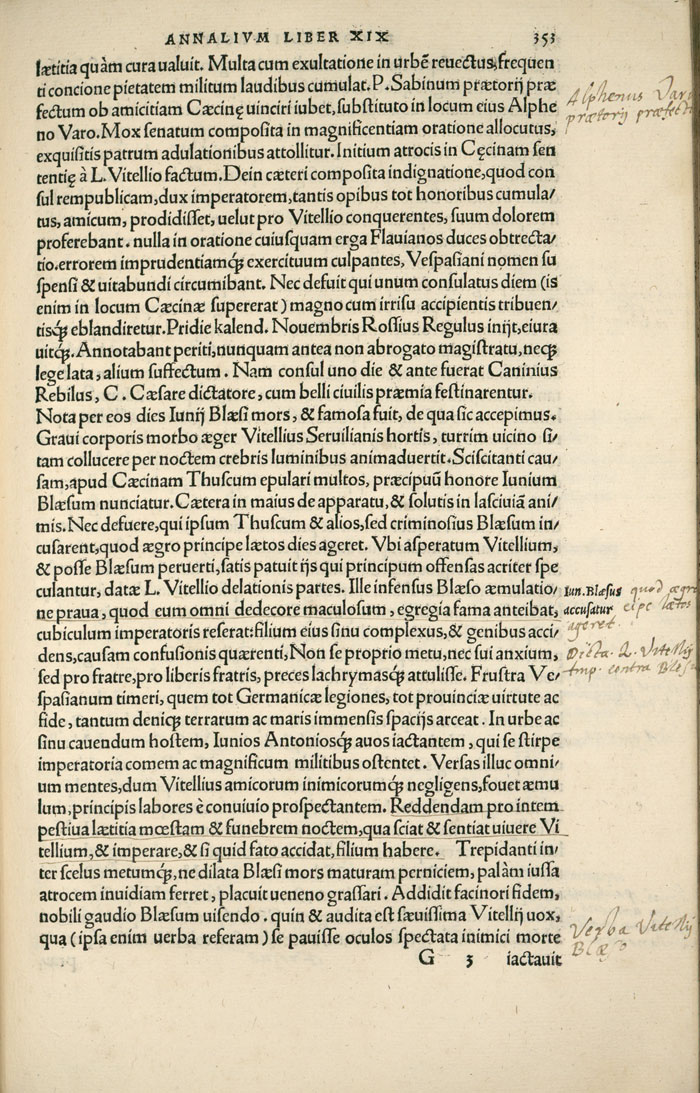 ANNALIVM LIBER XIX 353
lætitia quàm cura ualuit. Multa cum exultatione in urbē reuectus, frequen
ti concione pietatem militum laudibus cumulat. P. Sabinum prætorij præ
fectum ob amicitiam Cæcinę uinciri iubet, substituto in locum eius Alphe
no Varo. Mox senatum composita in magnificentiam oratione allocutus,
exquisitis patrum adulationibus attollitur. Initium atrocis in Cęcinam sen
tentię à L. Vitellio factum. Dein cæteri composita indignatione, quod con
sul rempublicam, dux imperatorem, tantis opibus tot honoribus cumula/
tus, amicum, prodidisset, uelut pro Vitellio conquerentes, suum dolorem
proferebant. nulla in oratione cuiusquam erga Flauianos duces obtrecta/
tio. errorem imprudentiamq́; exercituum culpantes, Vespasiani nomen su
spensi & uitabundi circumibant. Nec defuit qui unum consulatus diem (is
enim in locum Cæcinæ supererat) magno cum irrisu accipientis tribuen/
tisq́; eblandiretur. Pridie kalend. Nouembris Rossius Regulus inijt, eiura
uitq́;. Annotabant periti, nunquam antea non abrogato magistratu, neq;
lege lata, alium suffectum. Nam consul uno die & ante fuerat Caninius
Rebilus, C. Cæsare dictatore, cum belli ciuilis præmia festinarentur.
Nota per eos dies Iunij Blæsi mors, & famosa fuit, de qua sic accepimus.
Graui corporis morbo æger Vitellius Seruilianis hortis, turrim uicino si/
tam collucere per noctem crebris luminibus animaduertit. Sciscitanti cau/
sam, apud Cæcinam Thuscum epulari multos, præcipuū honore Iunium
Blæsum nunciatur. Cætera in maius de apparatu, & solutis in lasciuiā ani/
mis. Nec defuere, qui ipsum Thuscum & alios, sed criminosius Blæsum in/
cusarent, quod ægro principe lætos dies ageret. Vbi asperatum Vitellium,
& posse Blæsum peruerti, satis patuit ijs qui principum offensas acriter spe
culantur, datæ L. Vitellio delationis partes. Ille infensus Blæso æmulatio/
ne praua, quod eum omni dedecore maculosum, egregia fama anteibat,
cubiculum imperatoris reserat: filium eius sinu complexus, & genibus acci/
dens, causam confusionis quærenti, Non se proprio metu, nec sui anxium,
sed pro fratre, pro liberis fratris, preces lachrymasq́; attulisse. Frustra Ve/
spasianum timeri, quem tot Germanicæ legiones, tot prouinciæ uirtute ac
fide, tantum deniq; terrarum ac maris immensis spacijs arceat. In urbe ac
sinu cauendum hostem, Iunios Antoniosq́; auos iactantem, qui se stirpe
imperatoria comem ac magnificum militibus ostentet. Versas illuc omni/
um mentes, dum Vitellius amicorum inimicorumq́; negligens, fouet æmu
lum, principis labores è conuiuio prospectantem. Reddendam pro intem
pestiua lætitia mœstam & funebrem noctem, qua sciat & sentiat uiuere Vi
tellium, & imperare, & si quid fato accidat, filium habere. Trepidanti in/
ter scelus metumq́;, ne dilata Blæsi mors maturam perniciem, palàm iussa
atrocem inuidiam ferret, placuit ueneno grassari. Addidit facinori fidem,
nobili gaudio Blæsum uisendo. quin & audita est sæuissima Vitellij uox,
qua (ipsa enim uerba referam) se pauisse oculos spectata inimici morte
G 3 iactauit
Alphenus
prætorij præfect
Iun. Blæsus quod ægro
accusatur lætos
ageret.
Dicta L. Vitellij
contra
Verba Vitellij
Blæso